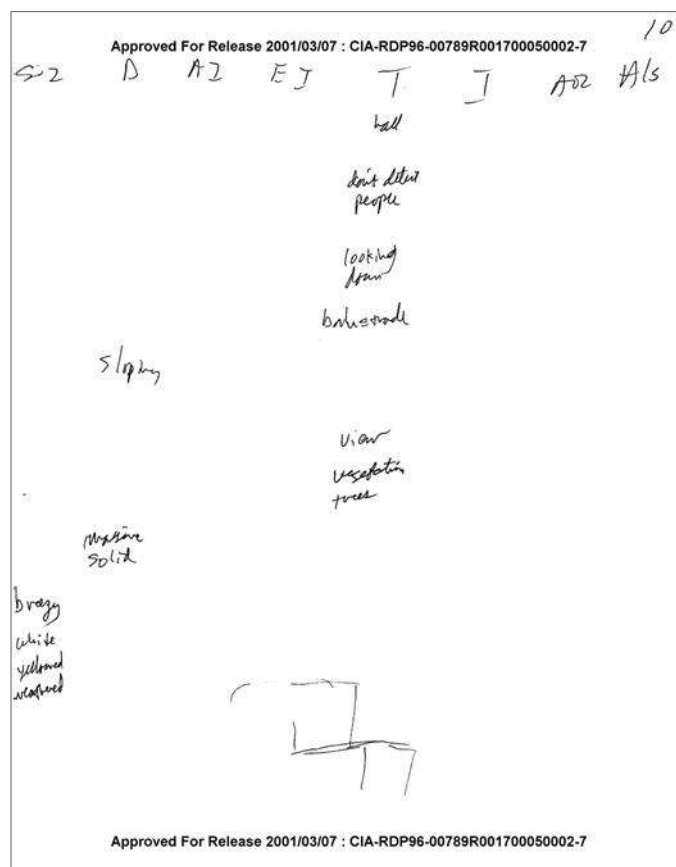 10
Approved For Release 2001/03/07 : CIA-RDP96-00789R001700050002-7
S-2 D AI EI T I AOL A/S
don't detect
people
looking
down
balustrade
sloping
view
vegetation
trees
massive
solid
breezy
white
yellowed
weathered
Approved For Release 2001/03/07 : CIA-RDP96-00789R001700050002-7